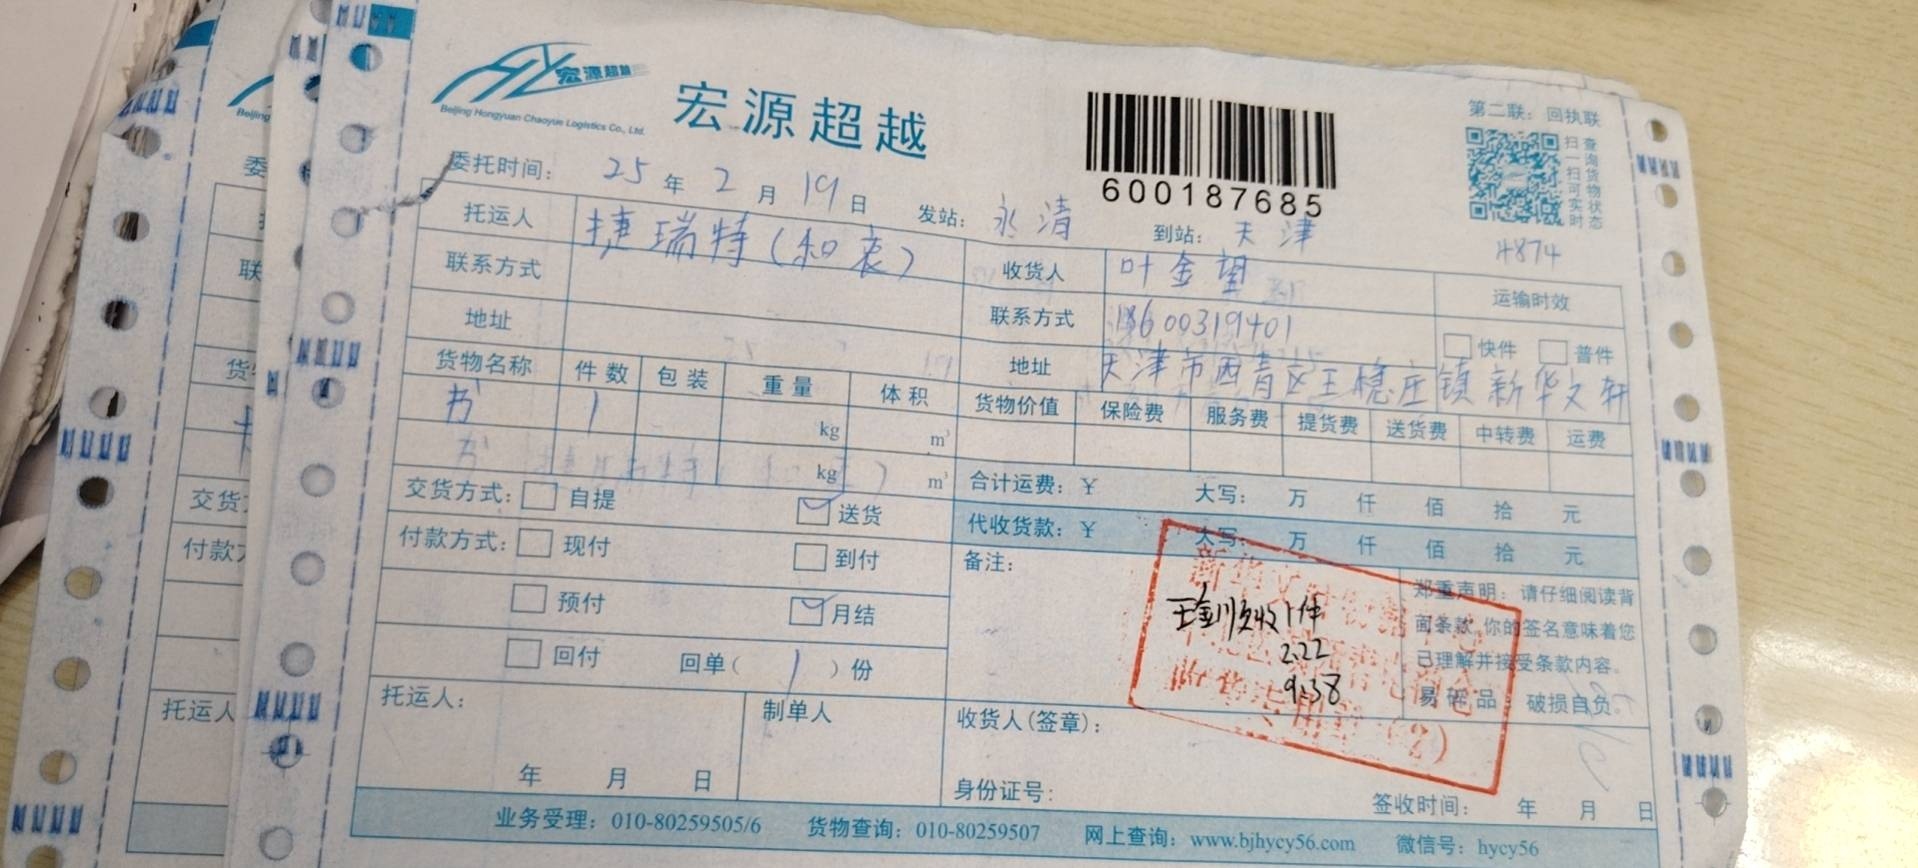 宏源超越
Beijing Hongyuan Chaoyue Logistics Co., Ltd.
宏源超越
600187685
第二联：回执联
扫一扫可实时
查询货物状态
委托时间： 25 年 2 月 19 日 发站： 永清 到站： 天津
4874
托运人 捷瑞特（和衷）
收货人 叶金望
运输时效
联系方式
联系方式 18600319401
快件 普件
地址
地址 天津市西青区王稳庄镇新华文轩
货物名称 件数 包装 重量 体积
货物价值 保险费 服务费 提货费 送货费 中转费 运费
书 1 kg m³
书 kg m³
交货方式： 自提 送货
合计运费：¥ 大写： 万 仟 佰 拾 元
付款方式： 现付 到付
代收货款：¥ 大写： 万 仟 佰 拾 元
预付 月结
备注：
回付 回单（ 1 ）份
实收1件
2.22
9:38
郑重声明：请仔细阅读背
面条款，你的签名意味着您
已理解并接受条款内容。
易碎品，破损自负。
托运人：
年 月 日
制单人
收货人(签章)：
身份证号：
签收时间： 年 月 日
业务受理：010-80259505/6 货物查询：010-80259507 网上查询：www.bjhycy56.com 微信号：hycy56
Beijing
委
联
货
交货
付款
托运人